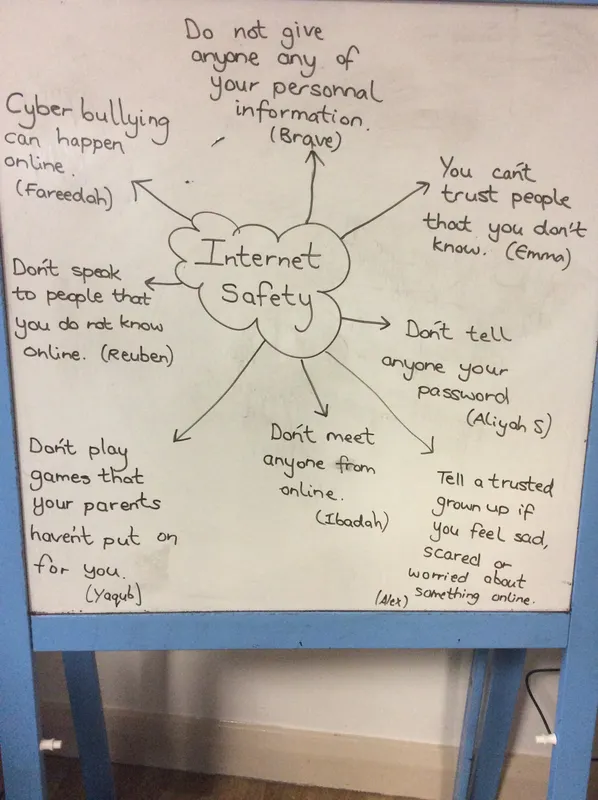 Do not give
anyone any of
your personnal
information.
(Brave)
Cyber bullying
can happen
online.
(Fareedah)
You can't
trust people
that you don't
know. (Emma)
Internet
Safety
Don't speak
to people that
you do not know
online. (Reuben)
Don't tell
anyone your
password
(Aliyah S)
Don't play
games that
your parents
haven't put on
for you.
(Yaqub)
Don't meet
anyone from
online.
(Ibadah)
Tell a trusted
grown up if
you feel sad,
scared or
worried about
something online.
(Alex)